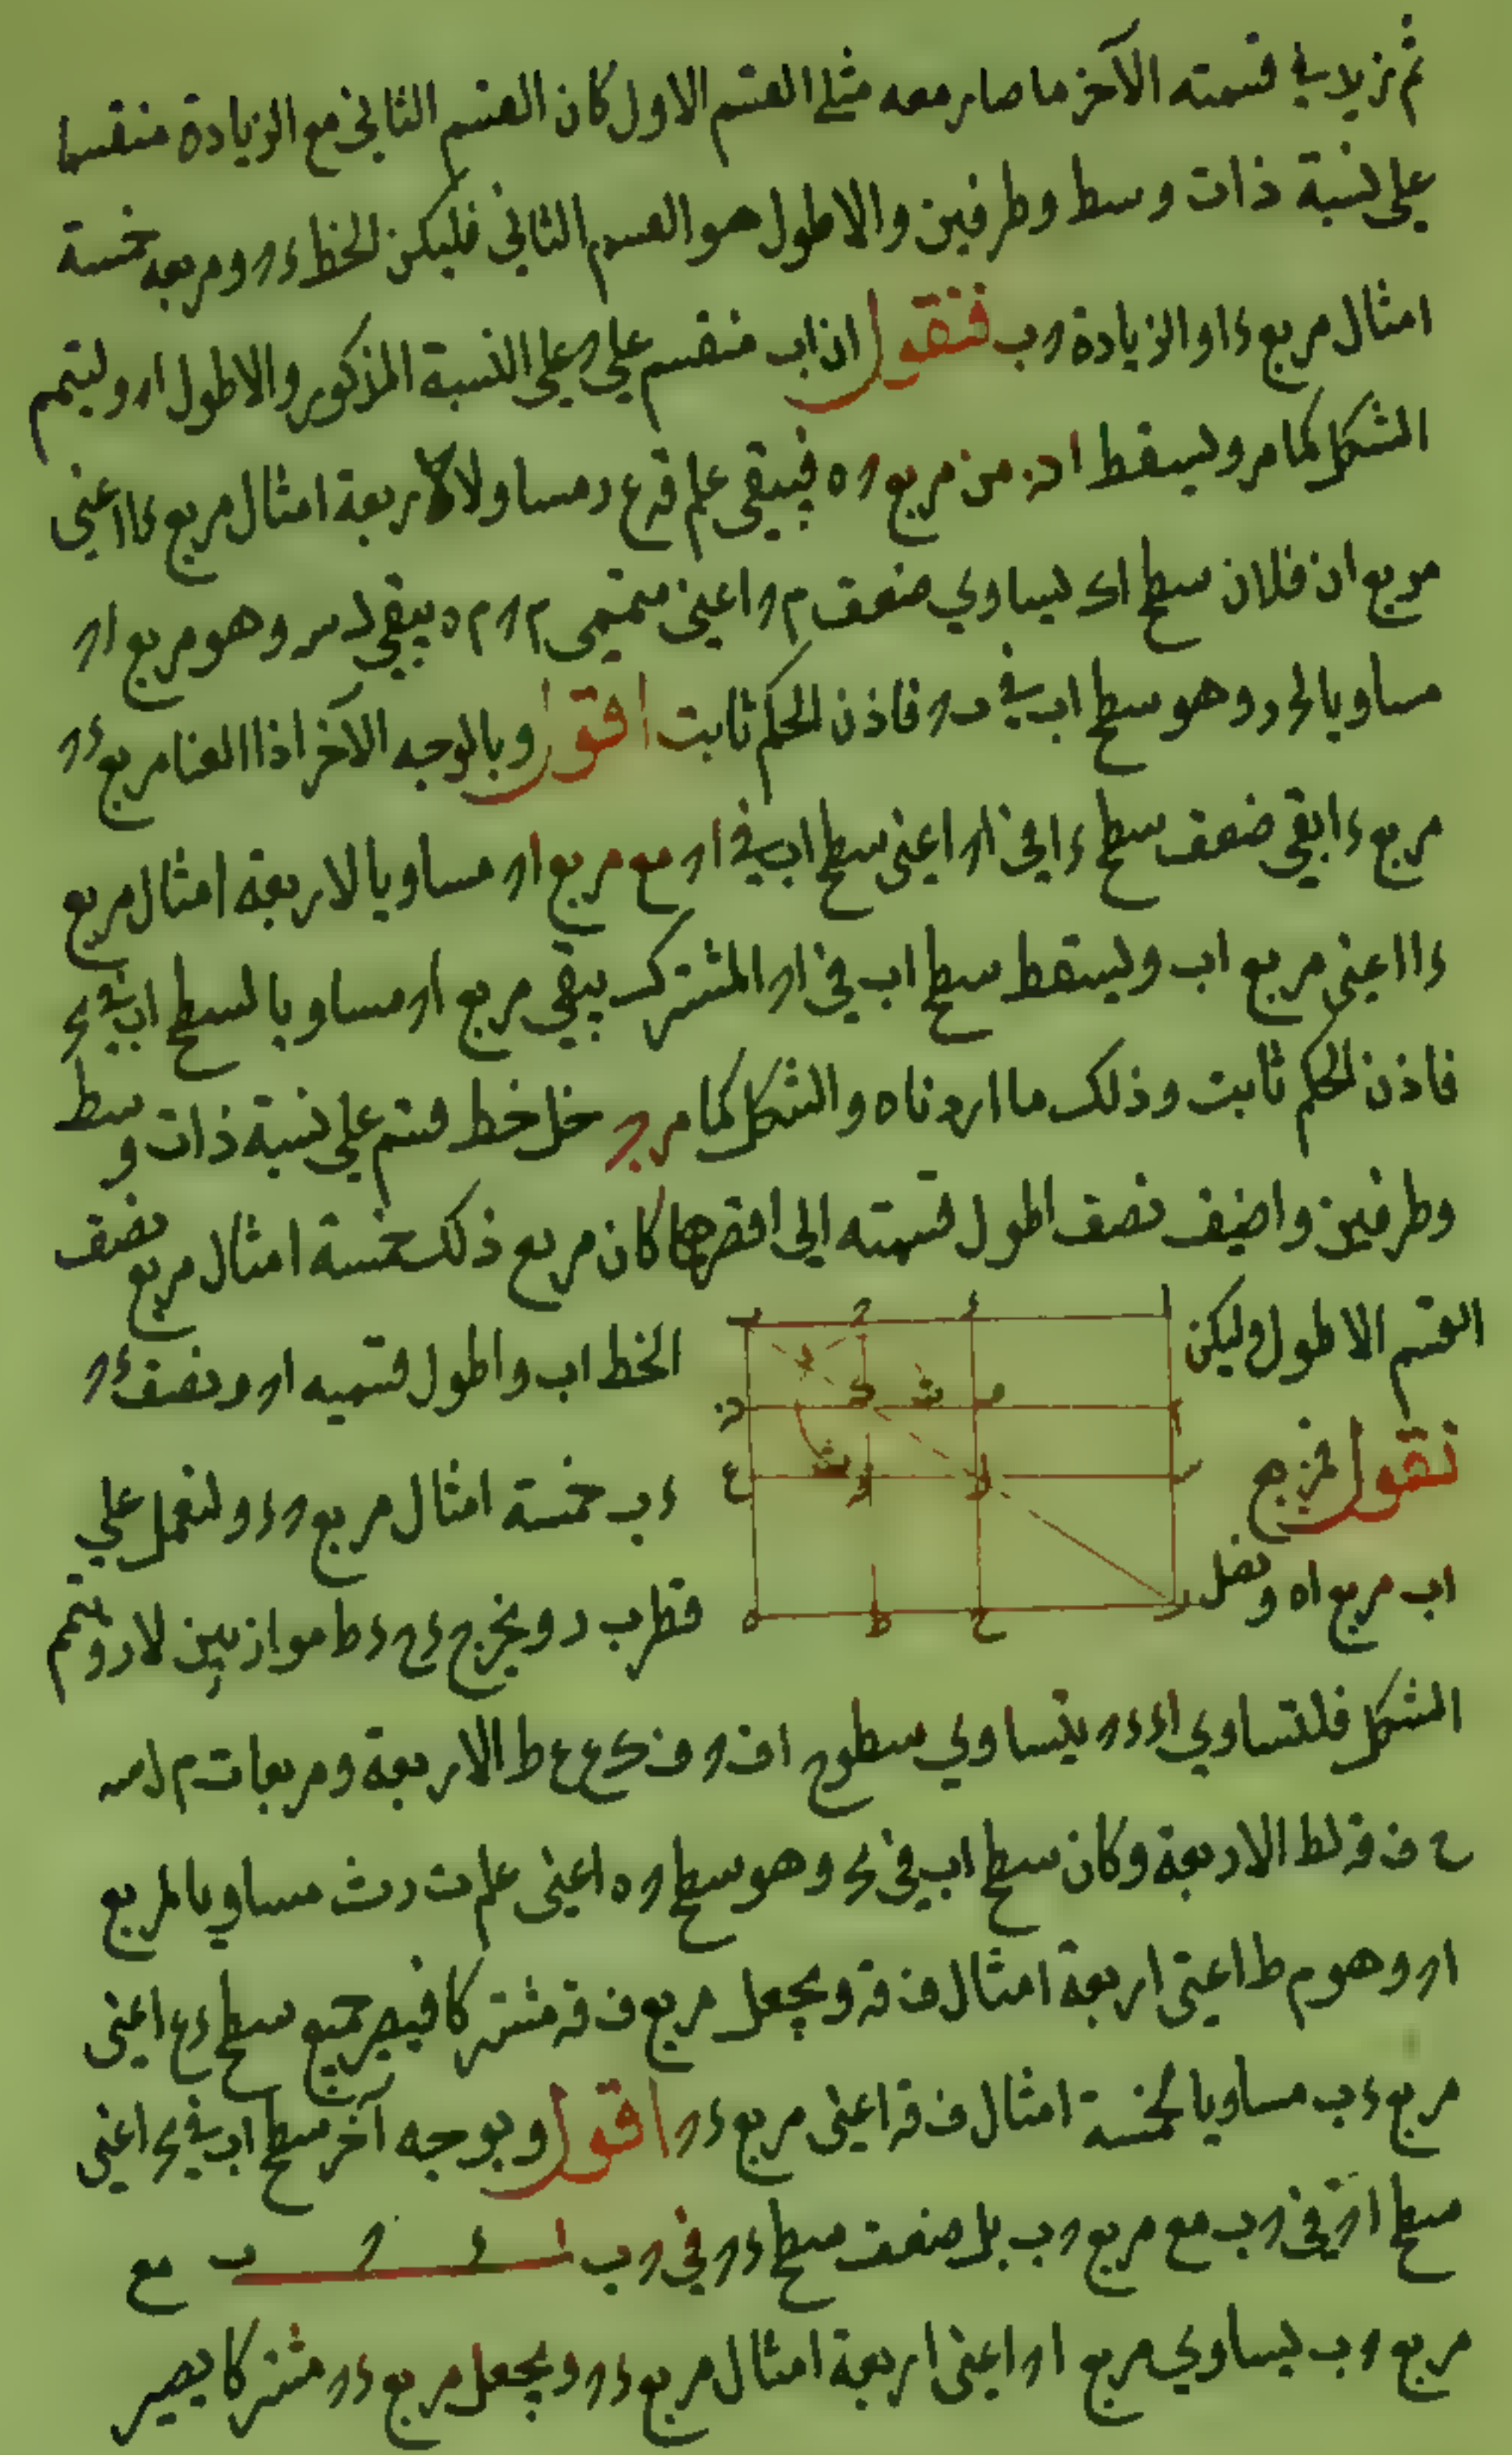 ثم نزيد في قسمته الآخر ما صار معه مثلي القسم الاول كان القسم الثاني مع الزيادة منقسما
على نسبة ذات وسط وطرفين والاطول هو القسم الثاني فليكن الخط ءر ومربعه خمسة
امثال مربع ءا والزيادة رب فنقول ان اب منقسم على ر على النسبة المذكور والاطول ار وليتمم
الشكل كما مر وليسقط ان من مربع ره فيبقى علم قرع د مساو لاربعة امثال مربع ءا اعني
مربع ان فلان سطح اك يساوي ضعف م ر اعني متممي م ر م ه يبقى ل س وهو مربع ار
مساويا لح د وهو سطح اب في ب ر فاذن الحكم ثابت اقول وبالوجه الآخر اذا القنا مربع ءر
مربع ءا بقي ضعف سطح ءا في ار اعني سطح اب في ار مع مربع ار مساويا لاربعة امثال مربع
ءا اعني مربع اب وليسقط سطح اب في ار المشترك يبقى مربع ار مساويا لسطح اب في
فاذن الحكم ثابت وذلك ما اردناه والشكل كما مر خط قسم على نسبة ذات وسط
وطرفين واضيف نصف اطول قسمته الى اقصرها كان مربع ذلك خمسة امثال مربع نصف
القسم الاطول وليكن الخط اب واطول قسميه ار ونصف ءر
نقول ءب خمسة امثال مربع رء ولنعمل على
اب مربع اه ونصل قطر ب د ونخرج ءح ر ط موازيين لاد ونتمم
الشكل فلتساوي اء ءر يتساوي سطوح اف ر ف ك ع ع ط الاربعة ومربعات م ل س
ح ف ق لط الاربعة وكان سطح اب في وهو سطح ره اعني علم ت رث مساويا لمربع
ار وهو م ط اعني اربعة امثال ف ق ويجعل مربع ف ق مشتركا فيصير جميع سطح ءع اعني
مربع ءب مساويا لخمسة امثال ف ق اعني مربع ءر اقول وبوجه آخر سطح اب في اعني
سطح ار في رب مع مربع رب بل ضعف سطح ءر في رب ا ء ر ب مع
مربع رب يساوي مربع ار اعني اربعة امثال مربع ءر ويجعل مربع ءر مشتركا يصير